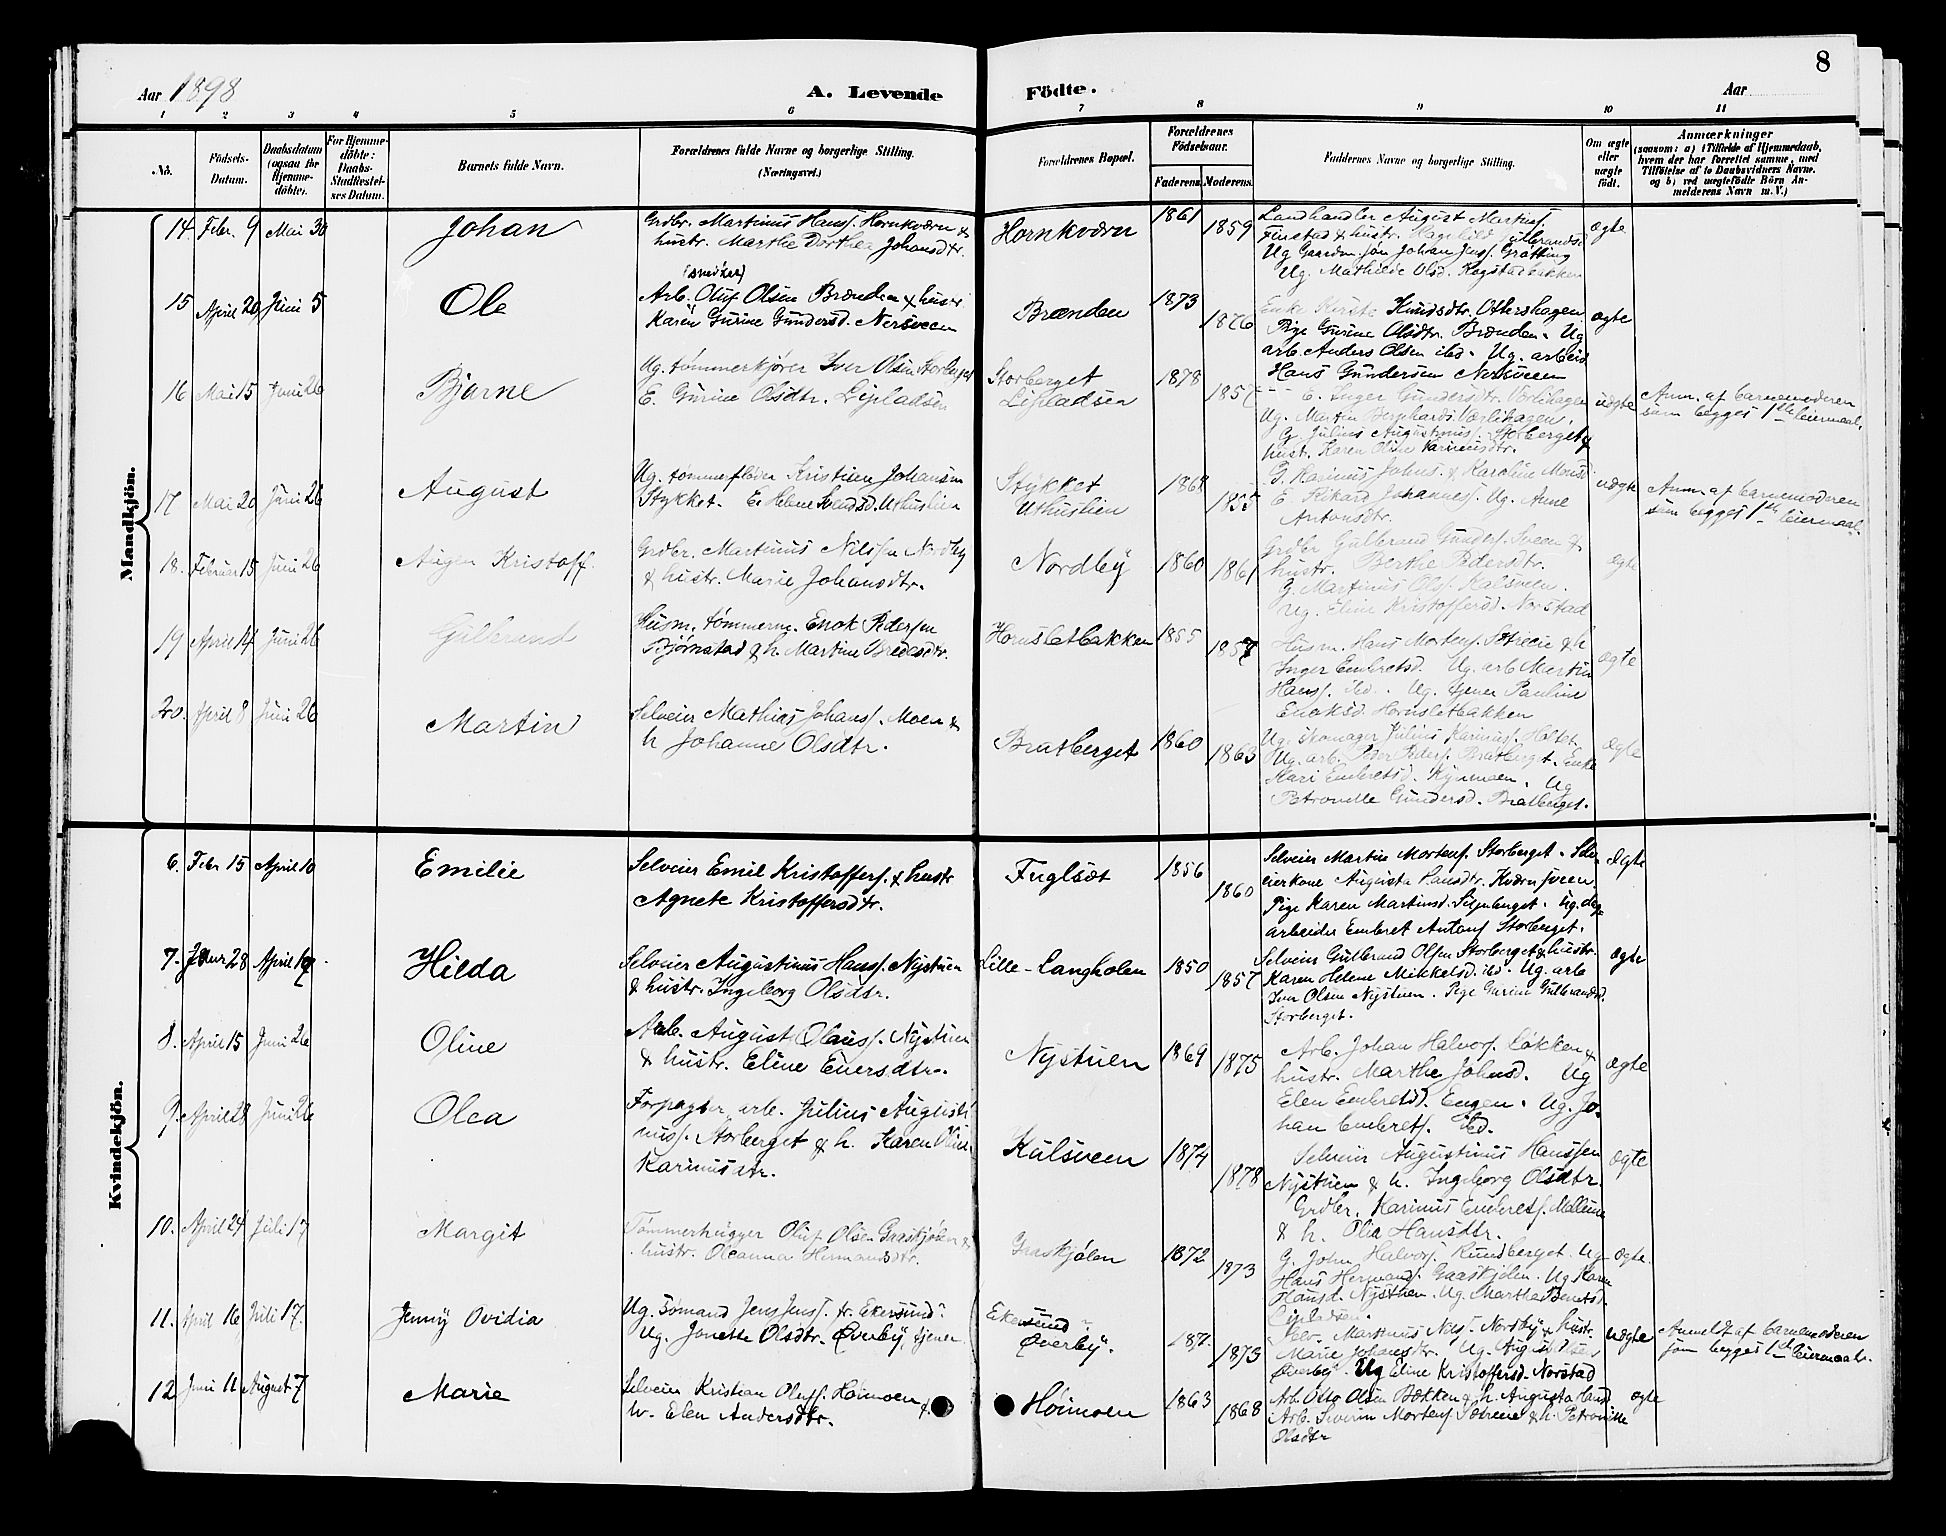 8
Aar 1898
A. Levende
Födte.
Aar
1 2 3 4 5 6 7 8 9 10 11
No.
Födsels-Datum.
Daabsdatum (ogsaa for Hjemme-döbte).
For Hjemme-döbte: Daabs-Stadfæstel-ses Datum.
Barnets fulde Navn.
Forældrenes fulde Navne og borgerlige Stilling.
(Næringsvei.)
Forældrenes Bopæl.
Forældrenes Födselsaar.
Faderens. Moderens.
Faddernes Navne og borgerlige Stilling.
Om ægte eller uægte födt.
Anmærkninger
(saasom: a) i Tilfælde af Hjemmedaab,
hvem der har forrettet samme, med
Tilföielse af to Daabsvidners Navne.
og b) ved uægtefödte Börn An-
melderens Navn m. V.)
Mandkjön.
14. Febr. 9 Mai 30 Johan
Grdbr. Martinus Hansf. Hornkværn &
hustr. Marthe Dorthea Johansdtr.
Hornkværn 1861 1859
Landhandler August Martinsf.
Finstad & hustr. Gulbrandsd
Ug Gaardm. søn Johan Jensf. Grøtting
Ug. Mathilde Olsd. Rogstadbakken
ægte
15 April 20 Juni 5 Ole
(snedker)
Arb. Oluf Olsen Brænden & hustr
Karen Gurine Gundersd. Nersveen
Brænden 1873 1876
Enke Kirste Knudsdtr. Ottershagen
Pige Gurine Olsdtr. Brænden. Ug
arb. Anders Olsen ibd. Ug. arbeid
Hans Gundersen Nersveen
ægte
16 Mai 15 Juni 26 Bjarne
Ug. tømmerkjører Iver Olsen Storberget
E. Gurine Olsdtr. Lipladsen
Storberget
Lipladsen
1878 1857
E. Inger Gundersdtr. Værlihagen
Ug. Martin Bernhards. Værlihagen.
G. Julius Augustinusf. Storberget &
hust. Karen Oline Karinusdtr.
uægte
Anm. af barnemoderen
som begges 1ste leiermaal.
17 Mai 20 Juni 26 August
Ug. tømmerfløder Kristian Johansen
Stykket. E. Helene Knudsd. Uthuslien
Stykket
Uthuslien
1868 1855
G. Rasmus Johns. & Karoline Monsd
E. Rikard Johannesf. Ug. Anne
Antonsdtr.
uægte
Anm. af barnemoderen
som begges 1ste leiermaal.
18. Februar 15 Juni 26 Augen Kristoff.
Grdbr. Martinus Nilssen Nordby
& hustr. Marie Johansdtr.
Nordby 1860 1861
Grdbr Gulbrand Gundersf. Sveen &
hustr. Berthe Pedersdtr.
G. Martinus Olsf. Kalsveen.
Ug. Eline Kristoffersd. Norstad
ægte
19 April 14 Juni 26 Gulbrand
Husm. tømmerm. Enok Pedersen
Bjørnstad & h. Martine Bredesdtr.
Hornsletbakken 1855 1857
Husm. Hans Mortens. Sætrene & h
Inger Embretsd. Ug. arb Martin
Hansf. ibd. Ug. tjener Pauline
Enoksd. Hornsletbakken
ægte
20. April 8 Juni 26 Martin
Selveier Mathias Johansf. Moen &
h Johanne Olsdtr.
Bratberget 1860 1863
Ug. skomager Julius Karinusf. Holtet
Ug. arb. Peder Pedersf. Bratberget. Enke
Mari Embretsd. Kynmoen. Ug
Petronelle Gundersd. Bratberget.
ægte
Kvindekjön.
6. Febr 15 April 10 Emilie
Selveier Emil Kristoffersf. & hustr
Agnete Kristoffersdtr.
Fuglsæt 1856 1860
Selveier Martin Mortensf. Storberget. Selv-
eierkone Augusta Hansdtr. Kværnsveen
Pige Karen Martinsd. Siljuberget. Ug. dag
arbeider Embret Antonf Storberget.
Ægte
7. Januar 28 April 10 Hilda
Selveier Augustinus Hansf. Nystuen
& hustr. Ingeborg Olsdtr.
Lille-Langholen 1850 1857
Selveier Gulbrand Olsen Storberget & hustr.
Karen Helene Mikkelsd. ibd. Ug. arb
Iver Olsen Nystuen. Pige Gurine Gulbrandsd.
Storberget.
ægte
8. April 15 Juni 26 Oline
Arb. August Olausf. Nystuen
& hustr. Eline Eversdtr.
Nystuen 1869 1875
Arb. Johan Halvorf. Løkken &
hustr. Marthe Johnsd. Ug
Elen Embretsd. Engen. Ug. Jo-
han Embretsf. Ibd.
ægte
9. April 28 Juni 26 Olea
Forpagter, arb. Julius Augusti-
nusf. Storberget & h. Karen Oline
Karinusdtr.
Kalsveen 1874 1878
Selveier Augustinus Hanssen
Nystuen & h. Ingeborg Olsdtr.
Grdbr. Karinus Embretsf. Mellem
& h. Olia Hansdtr.
ægte
10. April 24 Juli 17 Margit
Tømmerhugger Oluf Olsen Gaaskjølen &
hustr. Oleanna Hermansdtr.
Gaaskjølen 1872 1873
G. John Halvorf. Rundberget. Ug
Hans Hermansf. Gaaskjølen. Ug Karen
Hansd. Nysthen. Ug. Martha Berntsd.
Lipladsen.
ægte.
11. April 16 Juli 17. Jenny Ovidia
Ug. Sømand Jens Jensf. fr. Ekersund.
Ug. Jonette Olsdtr. Øverby, tjener
Ekersund
Øverby.
187. 1873
Selv. Martinus Nilsf. Norsby & hustr.
Marie Johansdtr. Ug. August Olsen
Øverby. Ug Eline Kristoffersd. Norstad
uægte
Anmeldt af barnemoderen
som begges 1ste leiermaal.
12 Juni 11 August 7 Marie
Selveier Kristian Olufsf. Høimoen &
h. Elen Andersdtr.
Høimoen 1863 1868
Arb. Otto Olsen Bækken & h. Augusta Hansd
Arb. Siverin Mortensf. Sætrene & h. Petronille
Olsdtr
ægte